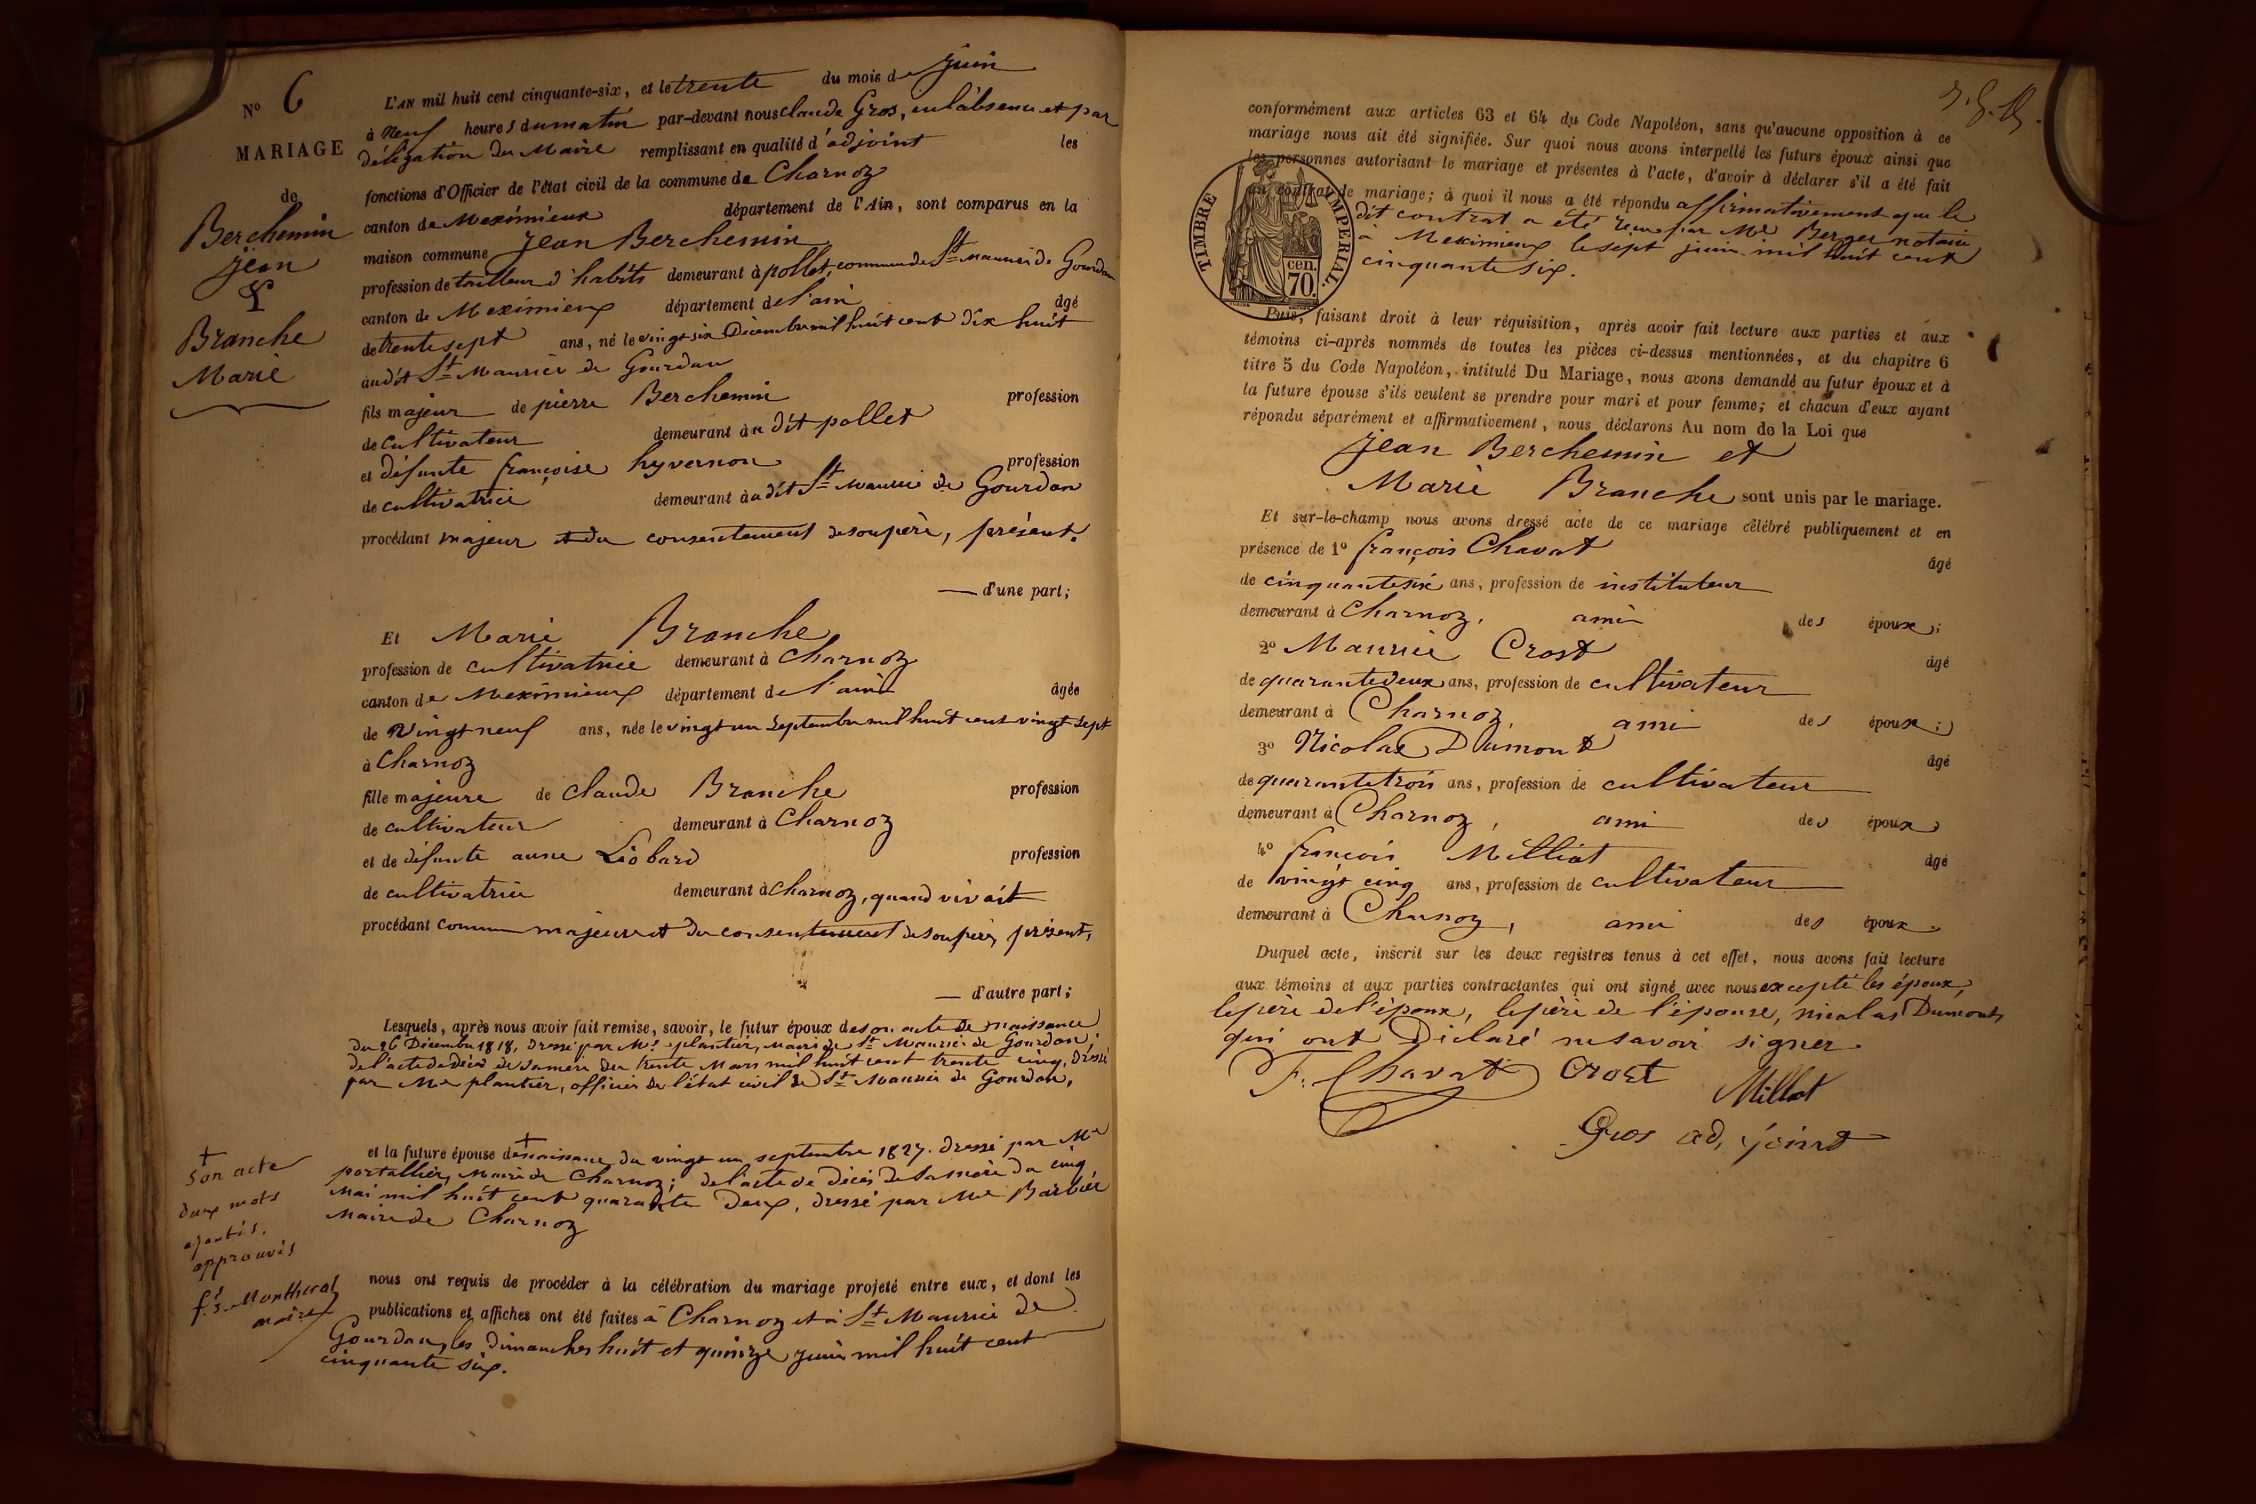 N° 6
MARIAGE
de
Berchemin
jean
&
Branche
Marie
L'AN mil huit cent cinquante-six, et le trente du mois de juin
à neuf heures du matin par-devant nous claude Gros, en l'absence et par
délégation du Maire remplissant en qualité d'adjoint les
fonctions d'Officier de l'état civil de la commune de Charnoz
canton de Meximieux département de l'Ain, sont comparus en la
maison commune jean Berchemin
profession de tailleur d'habits demeurant à pollet, commune de St Maurice de Gourdan
canton de Meximieux département de l'ain âgé
de trente sept ans, né le vingt six Décembre mil huit cent dix huit
audit St Maurice de Gourdan
fils majeur de pierre Berchemin profession
de cultivateur demeurant au dit pollet
et défunte françoise hyvernon profession
de cultivatrice demeurant au dit St Maurice de Gourdan
procédant majeur et du consentement de son père, présent.
d'une part;
Et Marie Branche
profession de cultivatrice demeurant à Charnoz
canton de Meximieux département de l'ain âgée
de vingt neuf ans, née le vingt un septembre mil huit cent vingt sept
à Charnoz
fille majeure de claude Branche profession
de cultivateur demeurant à Charnoz
et de défunte anne Liobard profession
de cultivatrice demeurant à Charnoz, quand vivait
procédant comme majeure et du consentement de son père, présent,
d'autre part;
Lesquels, après nous avoir fait remise, savoir, le futur époux de son acte de naissance
du 26 Décembre 1818, dressé par Mr plantier, maire de St Maurice de Gourdan;
de l'acte de décès de sa mère du trente Mars mil huit cent trente cinq, dressé
par Mr plantier, officier de l'état civil de St Maurice de Gourdan,
et la future épouse de + naissance du vingt un septembre 1827. dressé par Mr
portallier, Maire de Charnoz; de l'acte de décès de sa mère du cinq
Mai mil huit cent quarante Deux, dressé par Mr Barbier
Maire de Charnoz
+
Son acte
deux mots
ajoutés.
approuvés
maire
nous ont requis de procéder à la célébration du mariage projeté entre eux, et dont les
publications et affiches ont été faites à Charnoz et à St Maurice de
Gourdan, les dimanches huit et quinze juin mil huit cent
cinquante six.
conformément aux articles 63 et 64 du Code Napoléon, sans qu'aucune opposition à ce
mariage nous ait été signifiée. Sur quoi nous avons interpellé les futurs époux ainsi que
les personnes autorisant le mariage et présentes à l'acte, d'avoir à déclarer s'il a été fait
un contrat de mariage; à quoi il nous a été répondu affirmativement que le
dit contrat a été reçu par Me Berger notaire
à Meximieux le sept juin mil huit cent
cinquante six.
TIMBRE IMPERIAL.
70 cen.
Puis, faisant droit à leur réquisition, après avoir fait lecture aux parties et aux
témoins ci-après nommés de toutes les pièces ci-dessus mentionnées, et du chapitre 6
titre 5 du Code Napoléon, intitulé Du Mariage, nous avons demandé au futur époux et à
la future épouse s'ils veulent se prendre pour mari et pour femme; et chacun d'eux ayant
répondu séparément et affirmativement, nous déclarons Au nom de la Loi que
jean Berchemin et
Marie Branche sont unis par le mariage.
Et sur-le-champ nous avons dressé acte de ce mariage célébré publiquement et en
présence de 1° françois Chavat âgé
de cinquante six ans, profession de instituteur
demeurant à Charnoz, ami des époux;
2° Maurice Crost âgé
de quarante deux ans, profession de cultivateur
demeurant à Charnoz, ami des époux;
3° Nicolas Dumont âgé
de quarante trois ans, profession de cultivateur
demeurant à Charnoz, ami des époux
4° françois Milliat âgé
de vingt cinq ans, profession de cultivateur
demeurant à Charnoz, ami des époux.
Duquel acte, inscrit sur les deux registres tenus à cet effet, nous avons fait lecture
aux témoins et aux parties contractantes qui ont signé avec nous excepté les époux,
le père de l'époux, le père de l'épouse, nicolas Dumont,
qui ont Déclaré ne savoir signer.
F. Chavat Crost Milliat
Gros adjoint